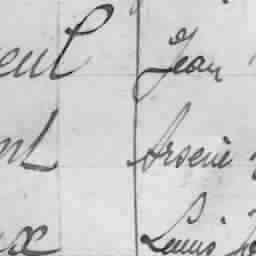 eul Jean
nt Arsene
ux Louis